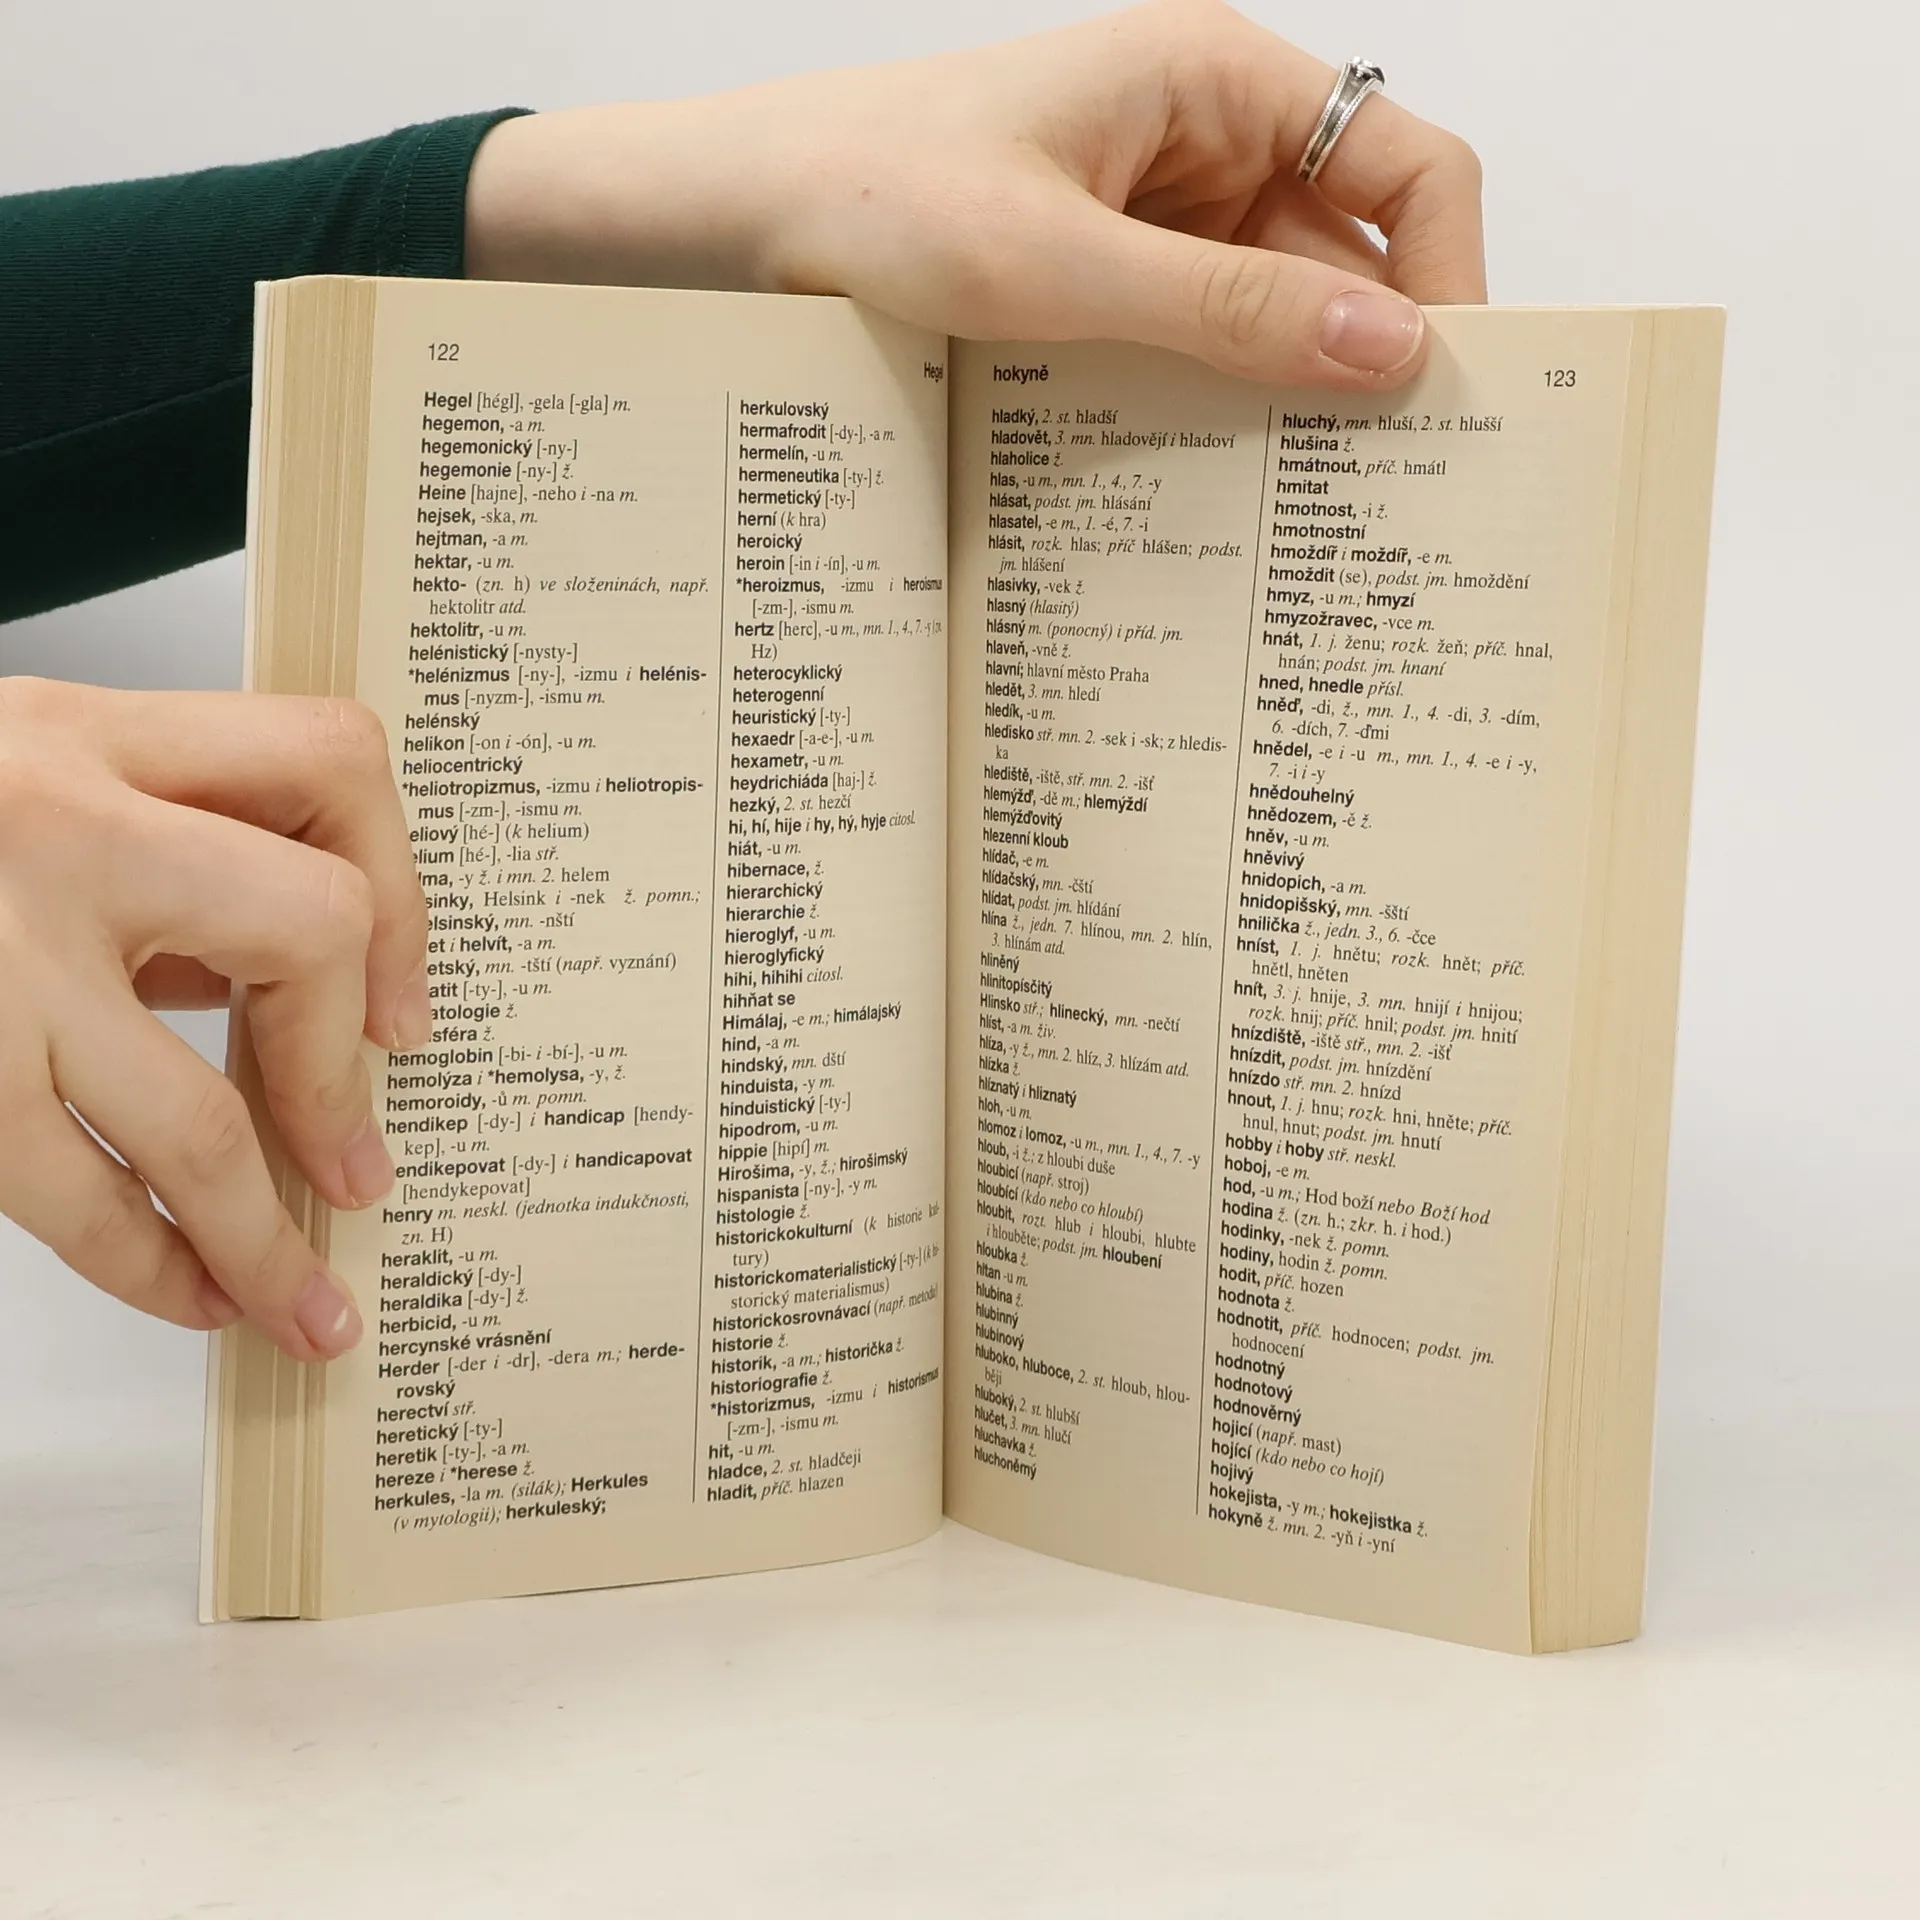 122
Hegel
Hegel [hégl], -gela [-gla] m.
hegemon, -a m.
hegemonický [-ny-]
hegemonie [-ny-] ž.
Heine [hajne], -neho i -na m.
hejsek, -ska, m.
hejtman, -a m.
hektar, -u m.
hekto- (zn. h) ve složeninách, např.
hektolitr atd.
hektolitr, -u m.
helénistický [-nysty-]
*helénizmus [-ny-], -izmu i helénis-
mus [-nyzm-], -ismu m.
helénský
helikon [-on i -ón], -u m.
heliocentrický
*heliotropizmus, -izmu i heliotropis-
mus [-zm-], -ismu m.
eliový [hé-] (k helium)
elium [hé-], -lia stř.
lma, -y ž. i mn. 2. helem
sinky, Helsink i -nek ž. pomn.;
elsinský, mn. -nští
et i helvít, -a m.
etský, mn. -tští (např. vyznání)
atit [-ty-], -u m.
atologie ž.
sféra ž.
hemoglobin [-bi- i -bí-], -u m.
hemolýza i *hemolysa, -y, ž.
hemoroidy, -ů m. pomn.
hendikep [-dy-] i handicap [hendy-
kep], -u m.
endikepovat [-dy-] i handicapovat
[hendykepovat]
henry m. neskl. (jednotka indukčnosti,
zn. H)
heraklit, -u m.
heraldický [-dy-]
heraldika [-dy-] ž.
herbicid, -u m.
hercynské vrásnění
Herder [-der i -dr], -dera m.; herde-
rovský
herectví stř.
heretický [-ty-]
heretik [-ty-], -a m.
hereze i *herese ž.
herkules, -la m. (silák); Herkules
(v mytologii); herkuleský;
herkulovský
hermafrodit [-dy-], -a m.
hermelín, -u m.
hermeneutika [-ty-] ž.
hermetický [-ty-]
herní (k hra)
heroický
heroin [-in i -ín], -u m.
*heroizmus, -izmu i heroismus
[-zm-], -ismu m.
hertz [herc], -u m., mn. 1., 4., 7. -y (zn.
Hz)
heterocyklický
heterogenní
heuristický [-ty-]
hexaedr [-a-e-], -u m.
hexametr, -u m.
heydrichiáda [haj-] ž.
hezký, 2. st. hezčí
hi, hí, hije i hy, hý, hyje citosl.
hiát, -u m.
hibernace, ž.
hierarchický
hierarchie ž.
hieroglyf, -u m.
hieroglyfický
hihi, hihihi citosl.
hihňat se
Himálaj, -e m.; himálajský
hind, -a m.
hindský, mn. dští
hinduista, -y m.
hinduistický [-ty-]
hipodrom, -u m.
hippie [hipí] m.
Hirošima, -y, ž.; hirošimský
hispanista [-ny-], -y m.
histologie ž.
historickokulturní (k historie kul-
tury)
historickomaterialistický [-ty-] (k hi-
storický materialismus)
historickosrovnávací (např. metoda)
historie ž.
historik, -a m.; historička ž.
historiografie ž.
*historizmus, -izmu i historismus
[-zm-], -ismu m.
hit, -u m.
hladce, 2. st. hladčeji
hladit, příč. hlazen
hokyně
123
hladký, 2. st. hladší
hladovět, 3. mn. hladovějí i hladoví
hlaholice ž.
hlas, -u m., mn. 1., 4., 7. -y
hlásat, podst. jm. hlásání
hlasatel, -e m., 1. -é, 7. -i
hlásit, rozk. hlas; příč hlášen; podst.
jm. hlášení
hlasivky, -vek ž.
hlasný (hlasitý)
hlásný m. (ponocný) i příd. jm.
hlaveň, -vně ž.
hlavní; hlavní město Praha
hledět, 3. mn. hledí
hledík, -u m.
hledisko stř. mn. 2. -sek i -sk; z hledis-
ka
hlediště, -iště, stř. mn. 2. -išť
hlemýžď, -dě m.; hlemýždí
hlemýžďovitý
hlezenní kloub
hlídač, -e m.
hlídačský, mn. -čští
hlídat, podst. jm. hlídání
hlína ž., jedn. 7. hlínou, mn. 2. hlín,
3. hlínám atd.
hliněný
hlinitopísčitý
Hlinsko stř.; hlinecký, mn. -nečtí
hlíst, -a m. živ.
hlíza, -y ž., mn. 2. hlíz, 3. hlízám atd.
hlízka ž.
hlíznatý i hliznatý
hloh, -u m.
hlomoz i lomoz, -u m., mn. 1., 4., 7. -y
hloub, -i ž.; z hloubi duše
hloubicí (např. stroj)
hloubící (kdo nebo co hloubí)
hloubit, rozt. hlub i hloubi, hlubte
i hlouběte; podst. jm. hloubení
hloubka ž.
hltan -u m.
hlubina ž.
hlubinný
hlubinový
hluboko, hluboce, 2. st. hloub, hlou-
běji
hluboký, 2. st. hlubší
hlučet, 3. mn. hlučí
hluchavka ž.
hluchoněmý
hluchý, mn. hluší, 2. st. hlušší
hlušina ž.
hmátnout, příč. hmátl
hmitat
hmotnost, -i ž.
hmotnostní
hmoždíř i moždíř, -e m.
hmoždit (se), podst. jm. hmoždění
hmyz, -u m.; hmyzí
hmyzožravec, -vce m.
hnát, 1. j. ženu; rozk. žeň; příč. hnal,
hnán; podst. jm. hnaní
hned, hnedle přísl.
hněď, -di, ž., mn. 1., 4. -di, 3. -dím,
6. -dích, 7. -ďmi
hnědel, -e i -u m., mn. 1., 4. -e i -y,
7. -i i -y
hnědouhelný
hnědozem, -ě ž.
hněv, -u m.
hněvivý
hnidopich, -a m.
hnidopišský, mn. -šští
hnilička ž., jedn. 3., 6. -čce
hníst, 1. j. hnětu; rozk. hnět; příč.
hnětl, hněten
hnít, 3. j. hnije, 3. mn. hnijí i hnijou;
rozk. hnij; příč. hnil; podst. jm. hnití
hnízdiště, -iště stř., mn. 2. -išť
hnízdit, podst. jm. hnízdění
hnízdo stř. mn. 2. hnízd
hnout, 1. j. hnu; rozk. hni, hněte; příč.
hnul, hnut; podst. jm. hnutí
hobby i hoby stř. neskl.
hoboj, -e m.
hod, -u m.; Hod boží nebo Boží hod
hodina ž. (zn. h.; zkr. h. i hod.)
hodinky, -nek ž. pomn.
hodiny, hodin ž. pomn.
hodit, příč. hozen
hodnota ž.
hodnotit, příč. hodnocen; podst. jm.
hodnocení
hodnotný
hodnotový
hodnověrný
hojicí (např. mast)
hojící (kdo nebo co hojí)
hojivý
hokejista, -y m.; hokejistka ž.
hokyně ž. mn. 2. -yň i -yní